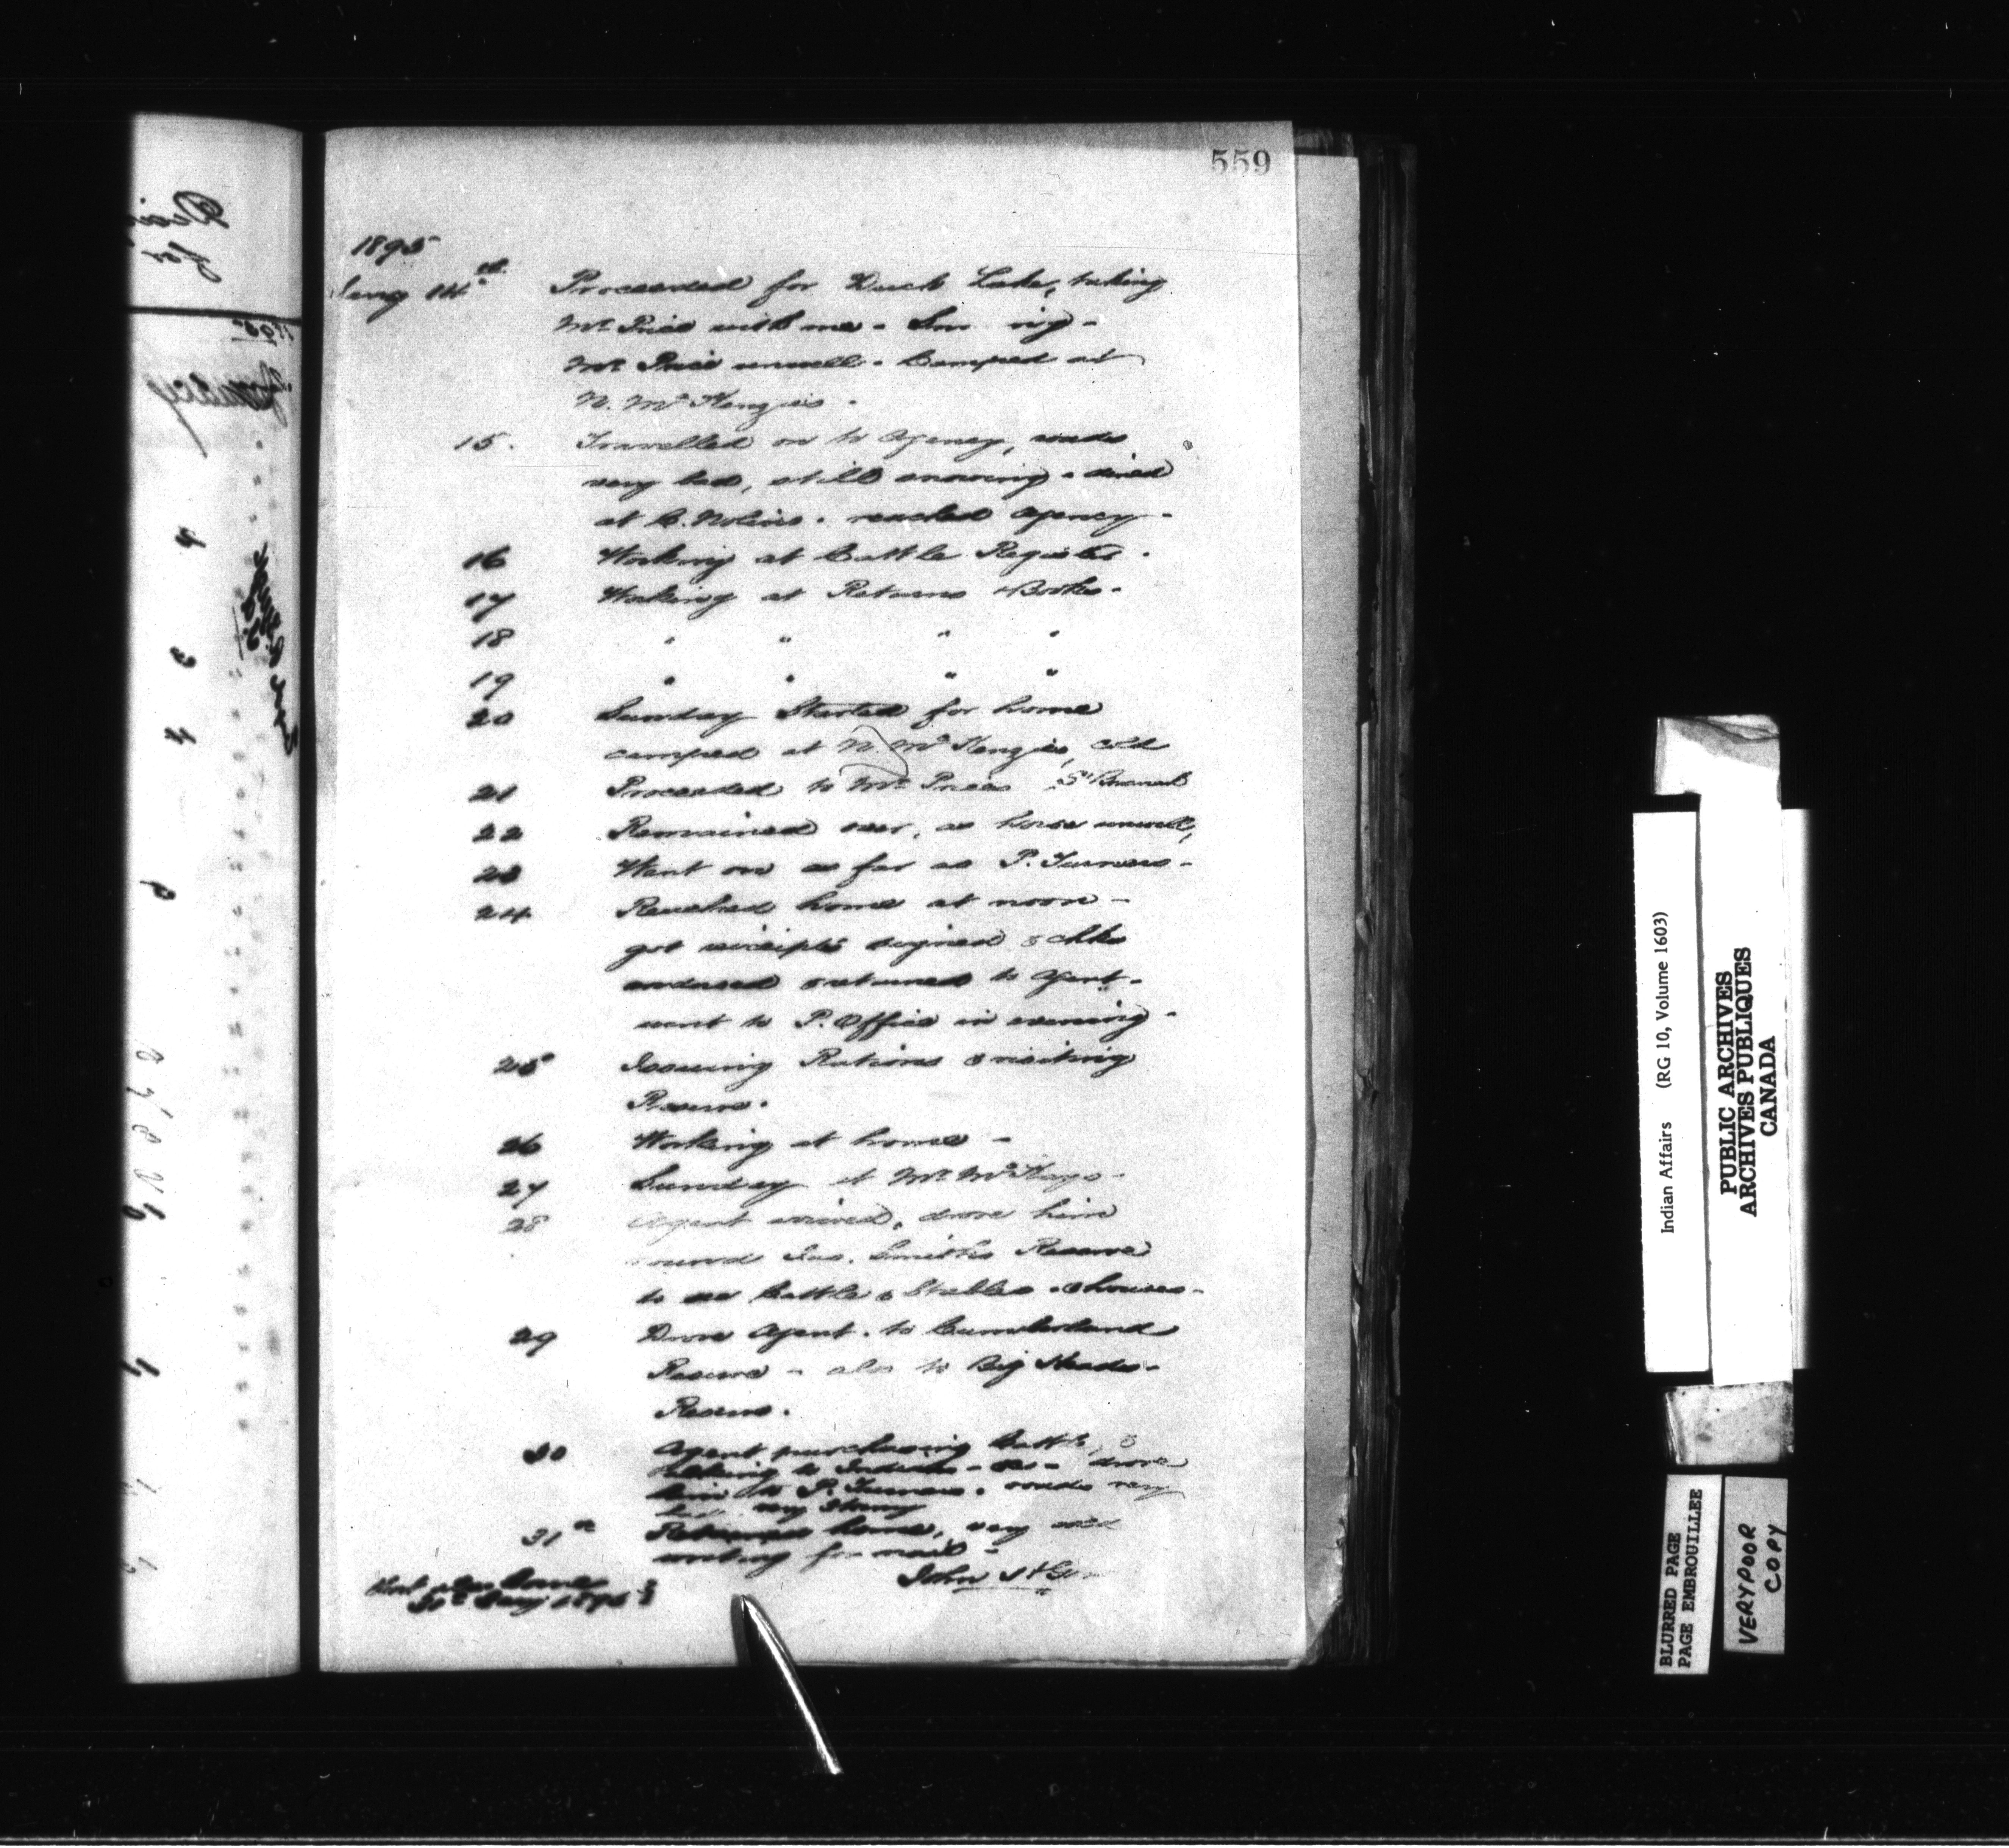 559
1895
Jany 14th Proceeded for Duck Lake, taking
Mr Price with me -
Mr Price unwell - Camped at
N. McKenzies.
15. Travelled on to Agency, roads
very bad, still snowing - dined
at C. Nolins. reached Agency -
16 Working at Cattle Register.
17 Working at Returns & Books -
18 " " " "
19 " " " "
20 Sunday Started for home
camped at N. McKenzies, cold
21 Proceeded to Mr Prices S. Branch
22 Remained over, as horse unwell,
23 Went on as far as P. Turners -
24 Reached home at noon -
got receipts signed & chks
endorsed & returned to Agent -
went to P. Office in evening -
25 Issuing Rations & visiting
Reserve.
26 Working at home -
27 Sunday at Mr McKays -
28 Agent arrived, drove him
round Jas. Smiths Reserve
to see Cattle & Stables & houses -
29 Drove Agent to Cumberland
Reserve - also to Big Heads
Reserve.
30 Agent purchasing Cattle, &
talking to Indians - drove
him to P. Turners. roads very
bad very Stormy
31st Returned home, very cold
working for mail -
John
31st Jany 1895
Indian Affairs (RG 10, Volume 1603)
PUBLIC ARCHIVES
ARCHIVES PUBLIQUES
CANADA
BLURRED PAGE
PAGE EMBROUILLEE
VERY POOR
COPY